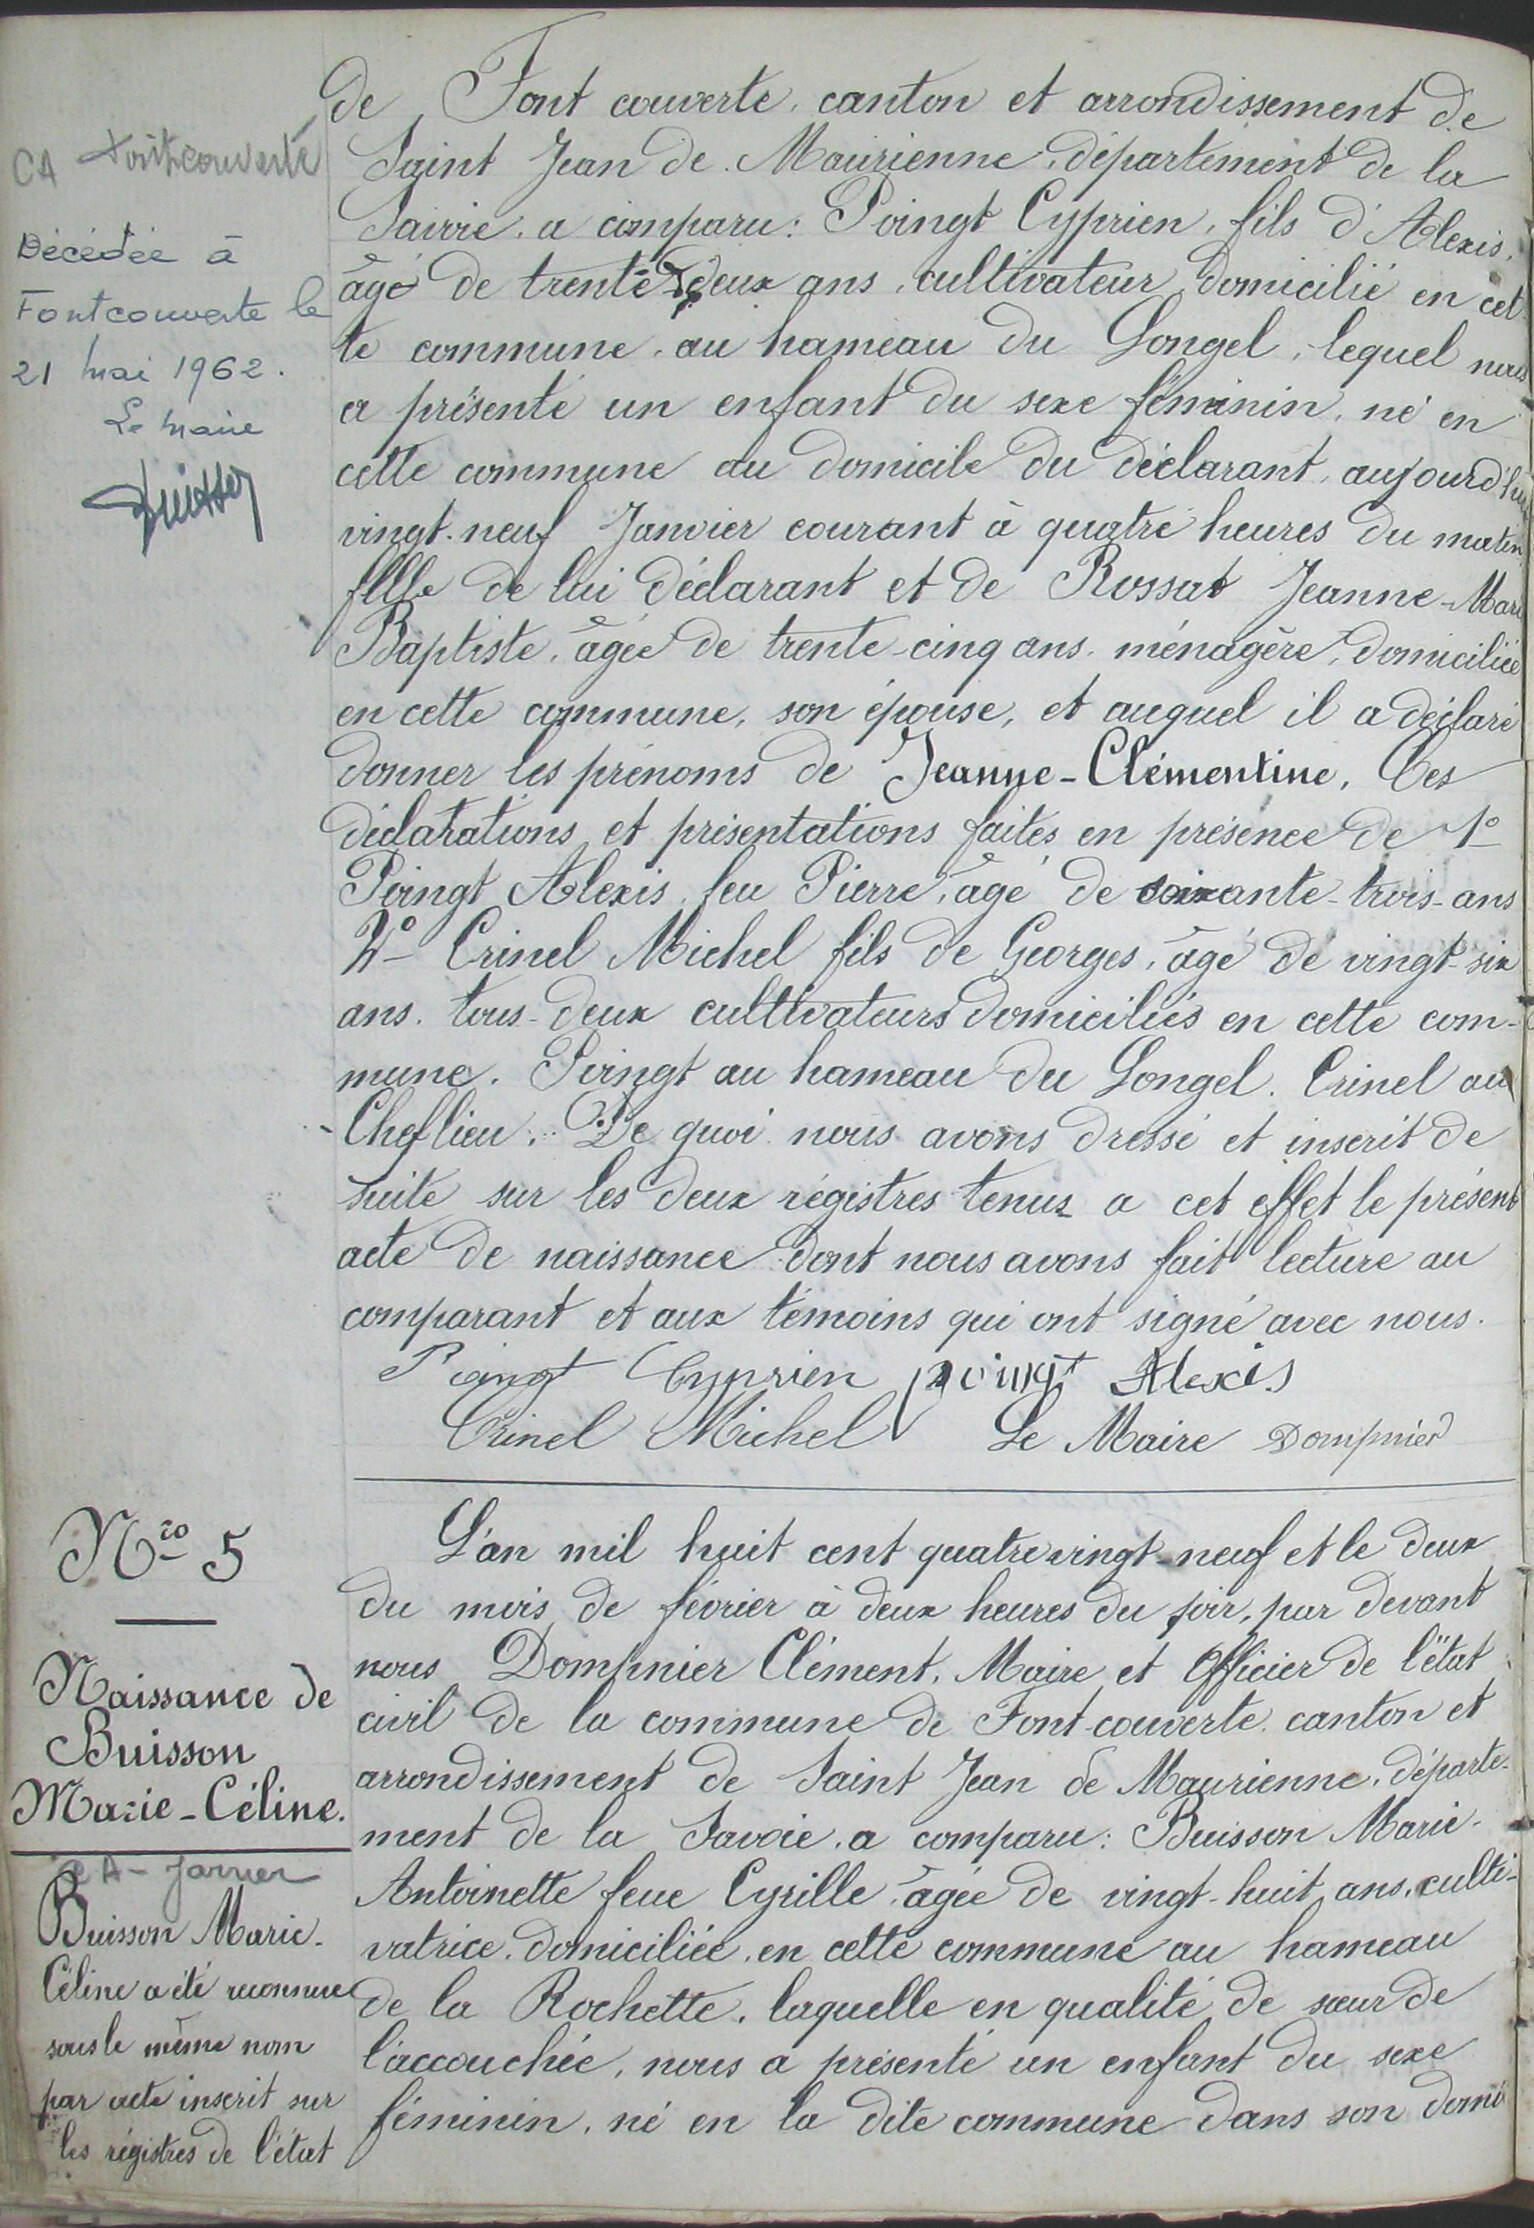 CA Fontcouverte
Décédée à
Fontcouverte le
21 mai 1962.
Le maire
de Font couverte, canton et arrondissement de
Saint Jean de Maurienne, département de la
Savoie, a comparu : Poingt Cyprien, fils d'Alexis,
âgé de trente-deux ans, cultivateur domicilié en cet
te commune, au hameau du Longel, lequel nous
a présenté un enfant du sexe féminin, né en
cette commune au domicile du déclarant, aujourd'hui
vingt-neuf Janvier courant à quatre heures du matin
fille de lui déclarant et de Rossat Jeanne-Marie
Baptiste, âgée de trente-cinq ans, ménagère, domiciliée
en cette commune, son épouse, et auquel il a déclaré
donner les prénoms de Jeanne-Clémentine. Ces
déclarations et présentations faites en présence de 1°
Poingt Alexis, feu Pierre, âgé de soixante-trois-ans
2° Crinel Michel fils de Georges, âgé de vingt-six
ans. tous-deux cultivateurs domiciliés en cette com-
mune. Poingt au hameau du Longel. Crinel au
Cheflieu. De quoi nous avons dressé et inscrit de
suite sur les deux régistres tenus a cet effet le présent
acte de naissance dont nous avons fait lecture au
comparant et aux témoins qui ont signé avec nous.
Poingt Cyprien poingt Alexis
Crinel Michel Le Maire Dompnier
Nro 5
Naissance de
Buisson
Marie-Céline.
CA - Jarrier
Buisson Marie-
Céline a été reconnue
sous le même nom
par acte inscrit sur
les régistres de l'état
L'an mil huit cent quatre vingt-neuf et le deux
du mois de février à deux heures du soir, par devant
nous Dompnier Clément, Maire et Officier de l'état
civil de la commune de Font-couverte, canton et
arrondissement de Saint Jean de Maurienne, départe-
ment de la Savoie, a comparu : Buisson Marie-
Antoinette feue Cyrille, âgée de vingt-huit ans, culti-
vatrice, domiciliée, en cette commune au hameau
de la Rochette, laquelle en qualité de sœur de
l'accouchée, nous a présenté un enfant du sexe
féminin, né en la dite commune dans son domi